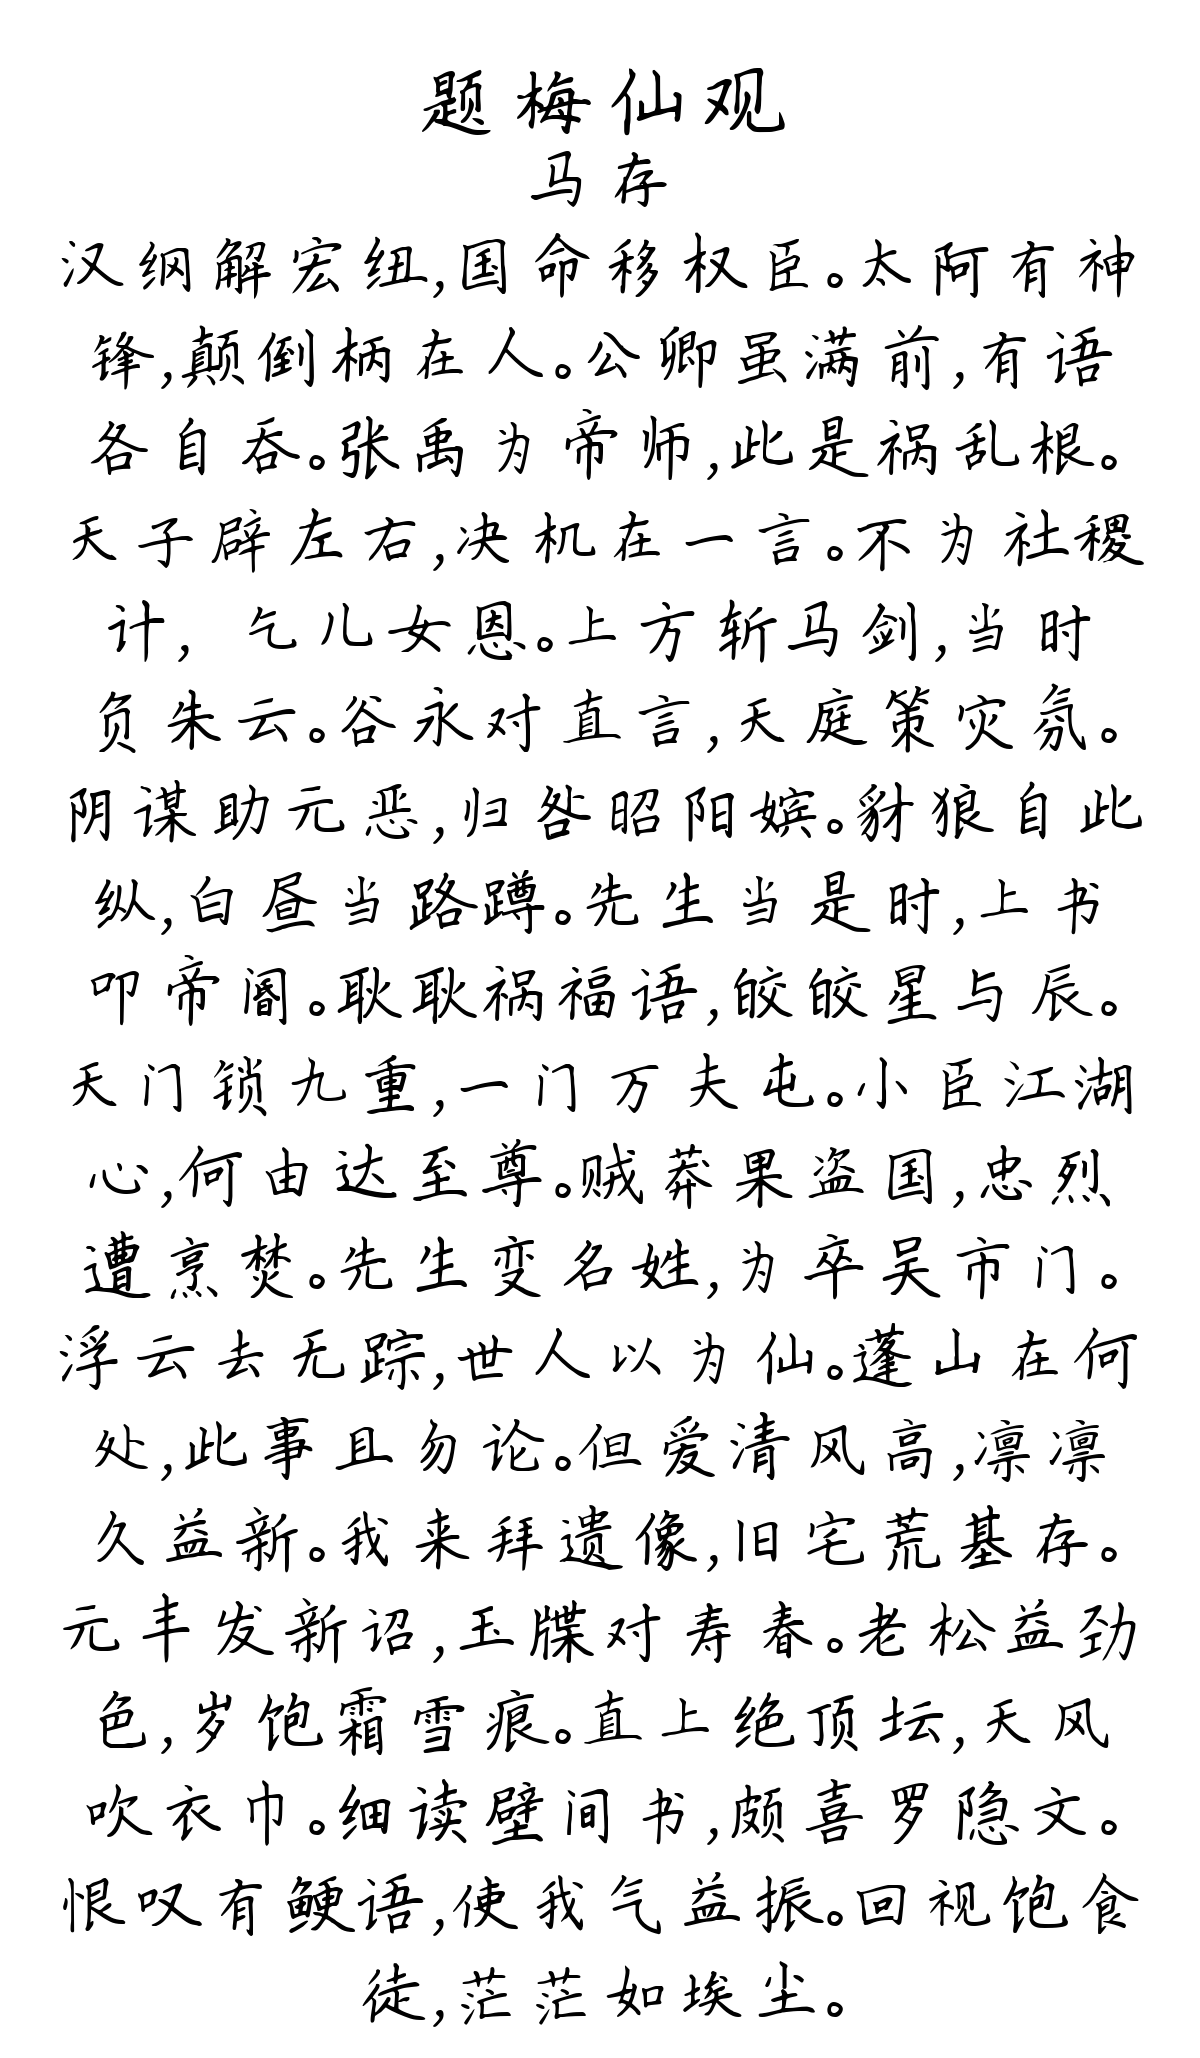 题梅仙观
马存
汉纲解宏纽,国命移权臣。太阿有神
锋,颠倒柄在人。公卿虽满前,有语
各自吞。张禹为帝师,此是祸乱根。
天子辟左右,决机在一言。不为社稷
计,乞儿女恩。上方斩马剑,当时
负朱云。谷永对直言,天庭策灾氛。
阴谋助元恶,归咎昭阳嫔。豺狼自此
纵,白昼当路蹲。先生当是时,上书
叩帝阍。耿耿祸福语,皎皎星与辰。
天门锁九重,一门万夫屯。小臣江湖
心,何由达至尊。贼莽果盗国,忠烈
遭烹焚。先生变名姓,为卒吴市门。
浮云去无踪,世人以为仙。蓬山在何
处,此事且勿论。但爱清风高,凛凛
久益新。我来拜遗像,旧宅荒基存。
元丰发新诏,玉牒对寿春。老松益劲
色,岁饱霜雪痕。直上绝顶坛,天风
吹衣巾。细读壁间书,颇喜罗隐文。
恨叹有鲠语,使我气益振。回视饱食
徒,茫茫如埃尘。